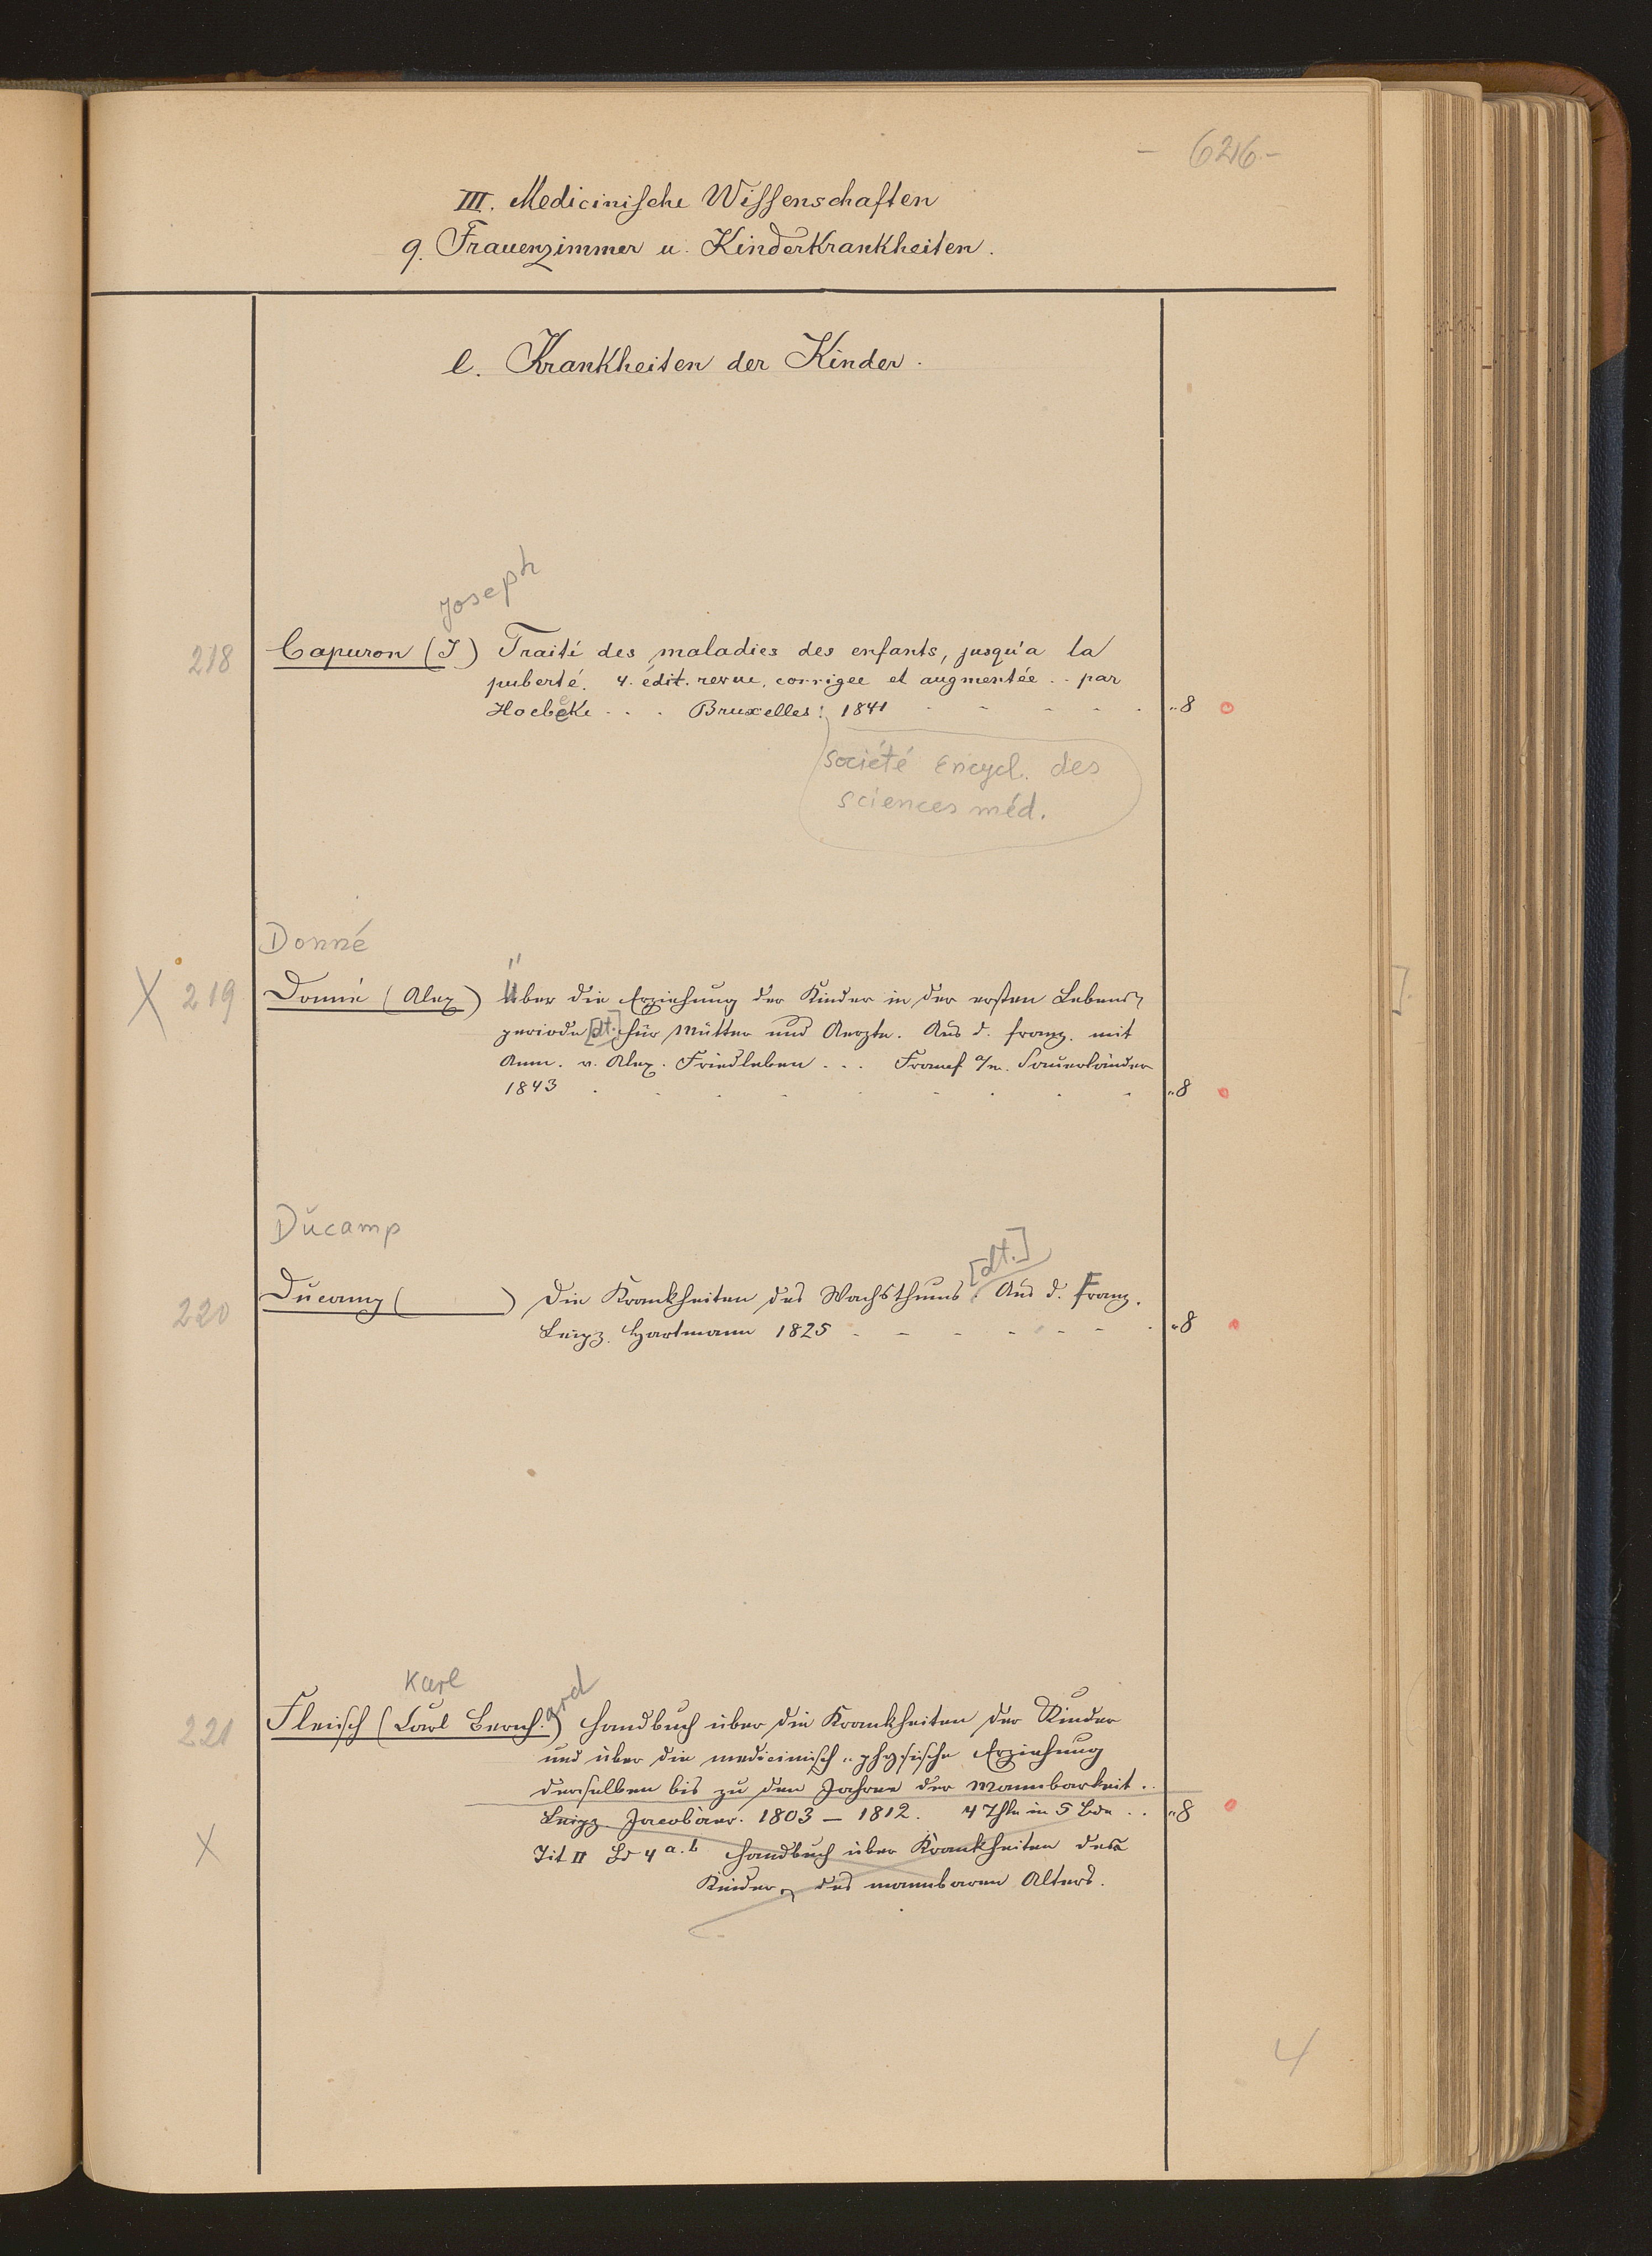 - 626 -
III. Medicinische Wissenschaften
9. Frauenzimmer u. Kinderkrankheiten.
e. Krankheiten der Kinder.
Joseph
218 Capuron (J) Traité des maladies des enfants, jusqu'a la
puberté. 4. édit. revue, corrigee et augmentée .. par
Hoebeke . . . Bruxelles: 1841 „8
Société Encycl. des
sciences méd.
Donné
X 219 Donné (Alex) Über die Erziehung der Kinder in der ersten Lebens-
periode [dt.] für Mütter und Aerzte. Aus d. franz. mit
Anm. v. Alex. Friedleben . . . Francf a/m. Sauerländer
1843 „8
Ducamp
[dt.]
220 Ducamp ( ) Die Krankheiten des Wachsthums. Aus d. Franz.
Leipz. Hartmann 1825 „8
Karl
ard
221 Fleisch (Carl Bernh.) Handbuch über die Krankheiten der Kinder
und über die medicinisch-physische Erziehung
derselben bis zu den Jahren der Mannbarkeit.
Leipz. Jacobäer. 1803 – 1812. 4 Thle in 5 Bde . . „8
X Tit II Bd 4 a.b Handbuch über Krankheiten des
Kinder, des mannbaren Alters.
4